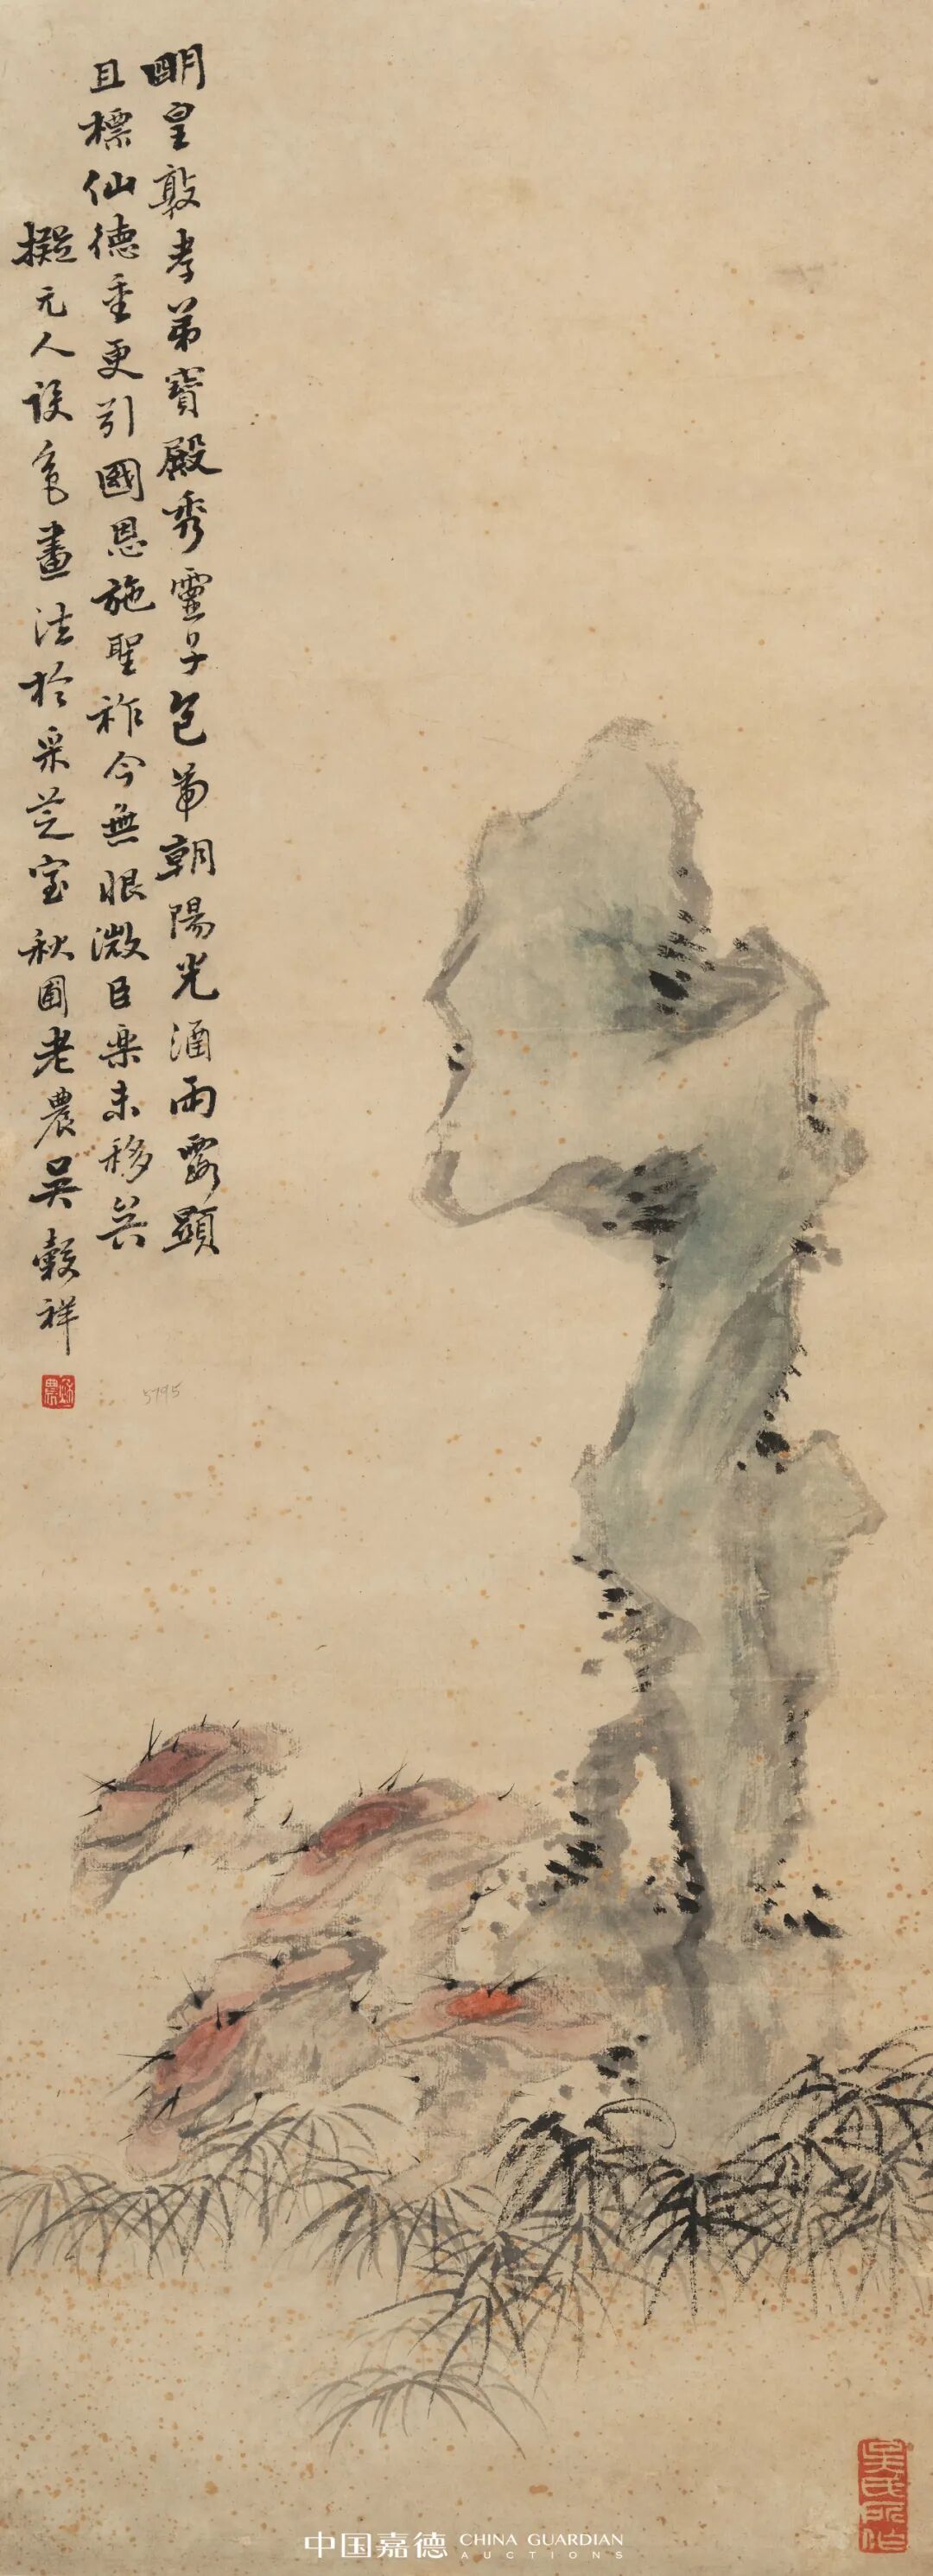 明皇敦孝弟寶殿秀靈子色帶朝陽光涵雨露顯
且標仙德重更引國恩施聖祚今無限微臣樂未移笑
擬元人設色畫法於采芝室秋圃老農吳穀祥
5795
吳氏所作
中国嘉德 CHINA GUARDIAN
AUCTIONS